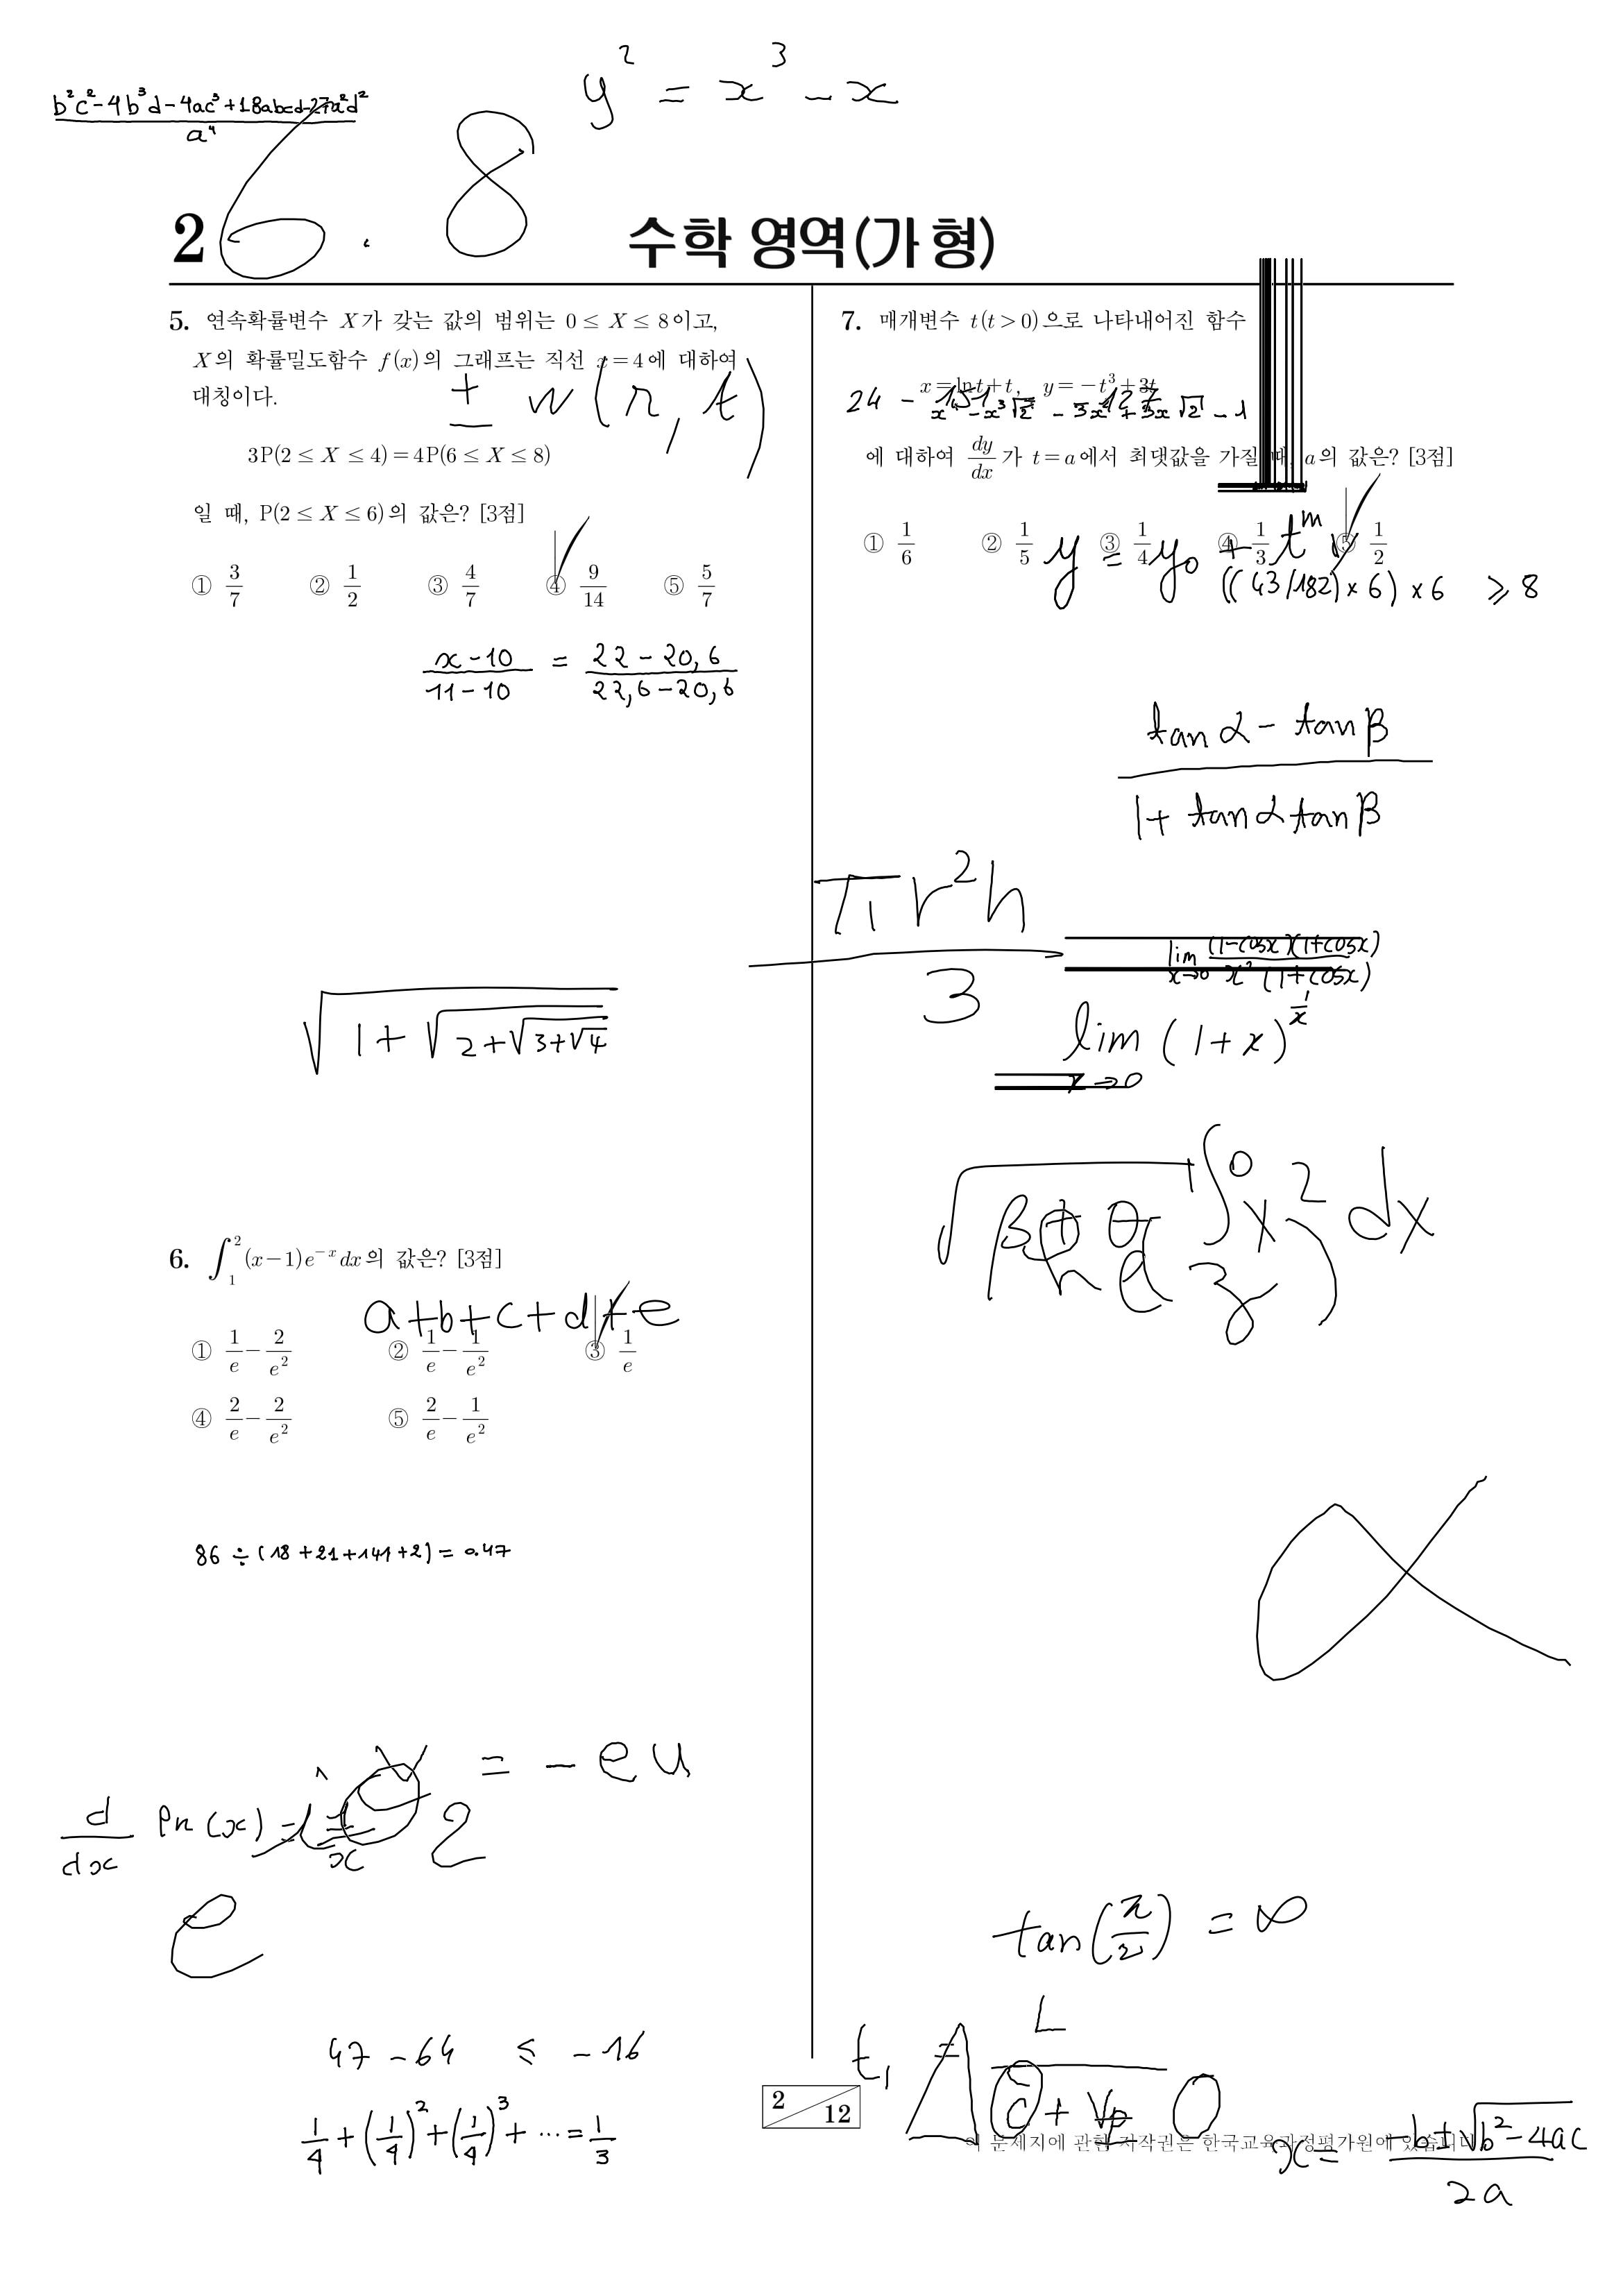 b²c²-4b³d-4ac³+18abcd-27a²d²
a⁴
y² = x³ - x
6.8
2
수학 영역(가 형)
5. 연속확률변수 X가 갖는 값의 범위는 0 ≤ X ≤ 8이고,
X의 확률밀도함수 f(x)의 그래프는 직선 x=4에 대하여
대칭이다.
± w(r, t)
3P(2 ≤ X ≤ 4) = 4P(6 ≤ X ≤ 8)
일 때, P(2 ≤ X ≤ 6)의 값은? [3점]
① 3/7 ② 1/2 ③ 4/7 ④ 9/14 ⑤ 5/7
(x-10)/(11-10) = (22-20,6)/(22,6-20,6)
√(1+√(2+√(3+√4)))
6. ∫₁² (x-1)e^{-x}dx의 값은? [3점]
a+b+c+d+e
① 1/e - 2/e² ② 1/e - 1/e² ③ 1/e
④ 2/e - 2/e² ⑤ 2/e - 1/e²
86 ÷ (18+21+141+2) = 0.47
= - e u
d/dx
2
e
47 - 64 ≤ -16
1/4 + (1/4)² + (1/4)³ + ⋯ = 1/3
7. 매개변수 t(t>0)으로 나타내어진 함수
x = ln t + t, y = -t³ + 3t
24 - 151 = -127
에 대하여 dy/dx 가 t=a에서 최댓값을 가질 때, a의 값은? [3점]
① 1/6 ② 1/5 ③ 1/4 ④ 1/3 ⑤ 1/2
y = y₀ + t^m
((43/182)×6)×6 ≥ 8
(tan α - tan β)/(1 + tan α tan β)
πr²h/3
lim x→0 (1-cosx)(1+cosx)/x²(1+cosx)
lim x→0 (1+x)^{1/x}
x² dx
α
tan(π/2) = ∞
t₁ = L
x = (-b±√(b²-4ac))/2a
2 12
이 문제지에 관한 저작권은 한국교육과정평가원에 있습니다.